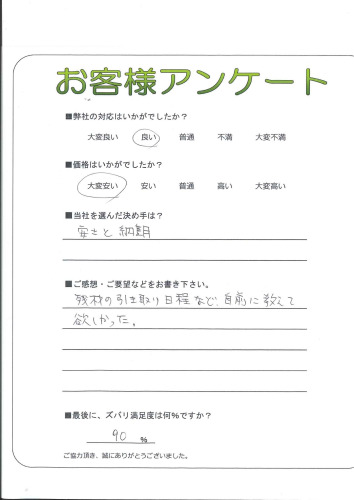 お客様アンケート
■弊社の対応はいかがでしたか?
大変良い 良い 普通 不満 大変不満
■価格はいかがでしたか?
大変安い 安い 普通 高い 大変高い
■当社を選んだ決め手は?
安さと納期
■ご感想・ご要望などをお書き下さい。
残材の引き取り日程など、事前に教えて
欲しかった。
■最後に、ズバリ満足度は何%ですか?
90 %
ご協力頂き、誠にありがとうございました。